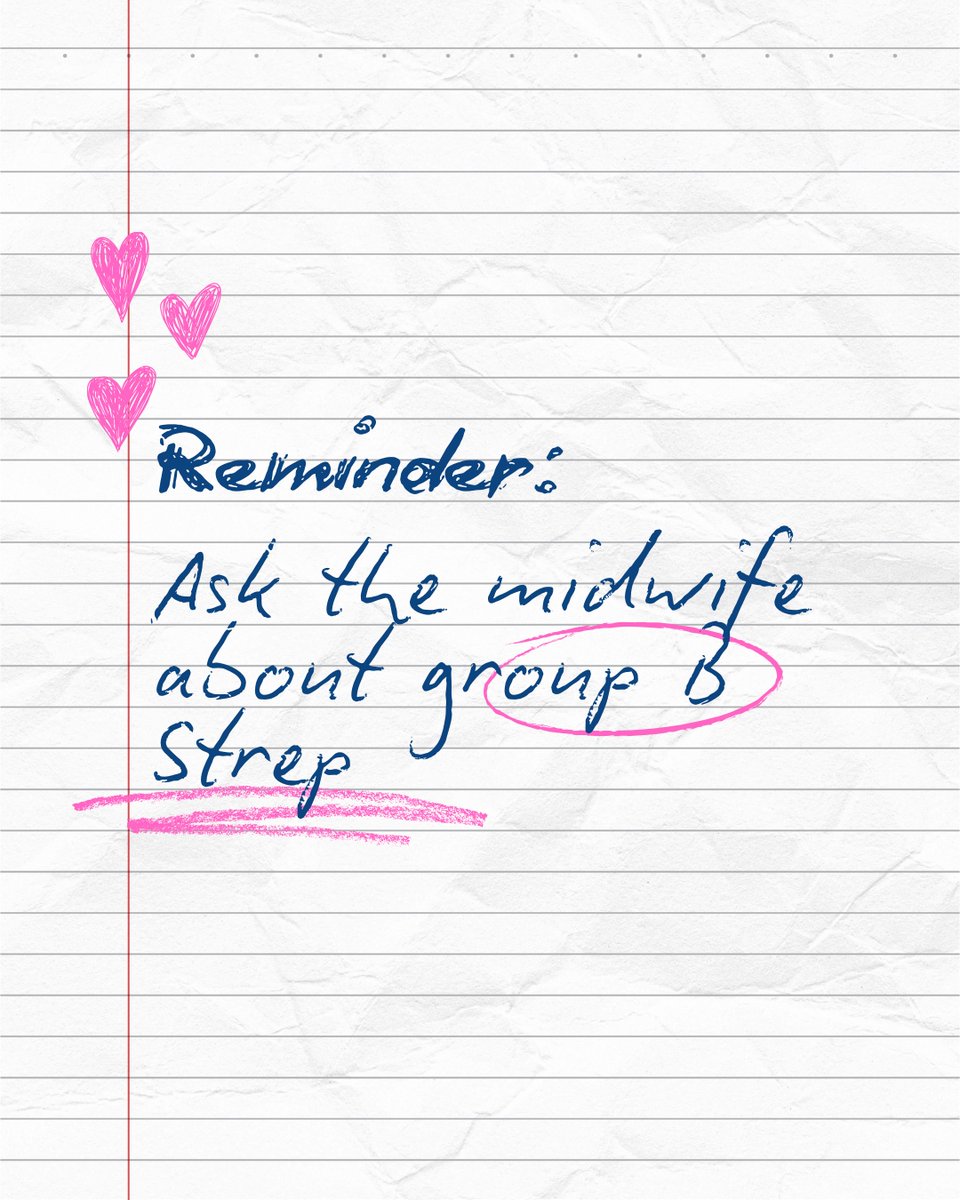 Reminder:
Ask the midwife
about group B
Strep